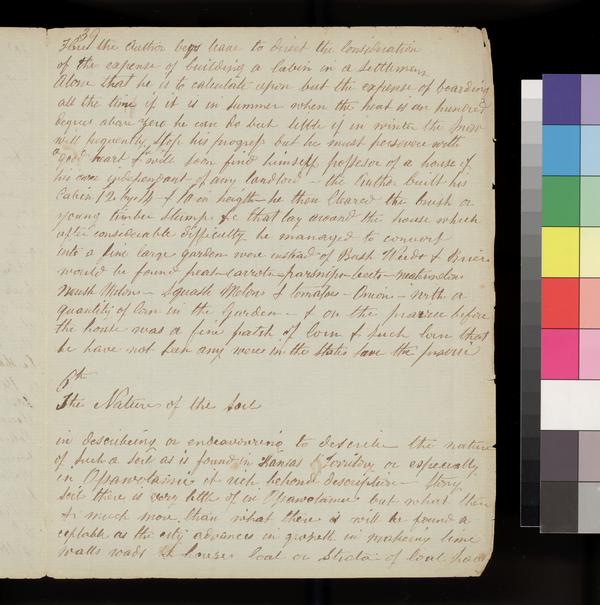 39
Here the Author begs leave to direct the Consideration
of the expense of building a Cabin in a Settlement
alone that he is to calculate upon but the expense of boarding
all the time if it is in summer when the heat is an hundred
degrees above zero he can do but little if in winter the snow
will frequently stop his progress but he must persevere with
a good heart & will soon find himself possessor of a house of
his own independant of any landlord - the Author built his
Cabin 12 by 14 & 10 in heigth - he then Cleared the brush or
young timber Stumps &c that lay around the house which
after considerable difficulty he managed to convert
into a fine large garden were instead of Bash Weeds & Briers
would be found peas - carrots - parsnips - beets - watermelons
Mush Melons - Squash Melons & tomatoes - Onions - with a
quantity of Corn in the Garden - & on the prairie before
the house was a fine patch of Corn & such Corn that
he have not seen any were in the States save the prairie
6th
The Nature of the Soil
in describeing or endeavouring to describe the nature
of such a soil as is found in Kansas Territory or especially
in Ossawatamie it is rich beyond description - Stony
Soil there is very little of in Ossawatamie but what there
& much more than what there is will be found a
ceptable as the city advances in growth in makeing lime
Walls roads & houses Coal or Strata of Coal